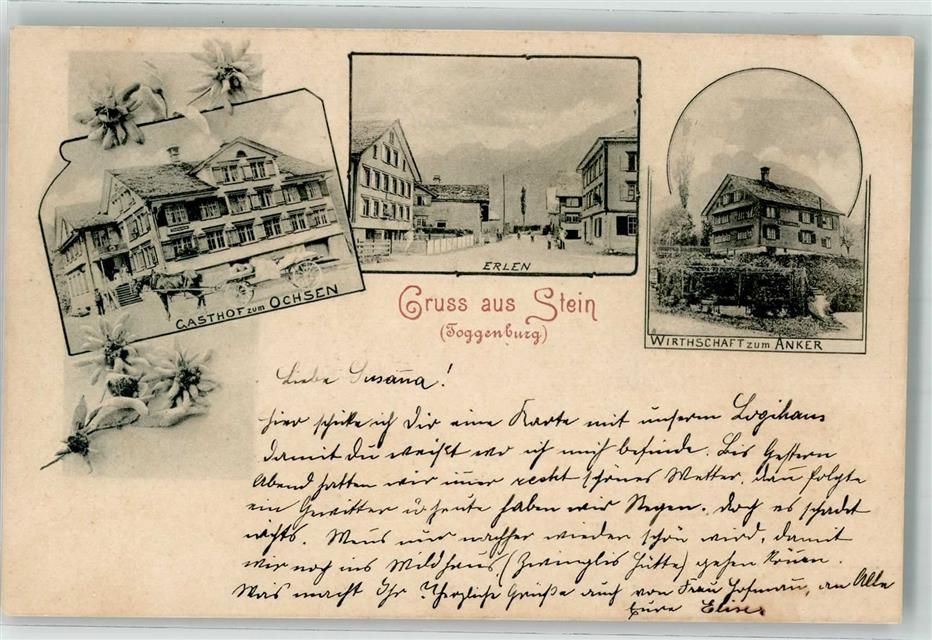 GASTHOF zum OCHSEN
ERLEN
WIRTHSCHAFT zum ANKER
Gruss aus Stein
(Toggenburg)
Liebe Susan̄a!
hier schike ich Dir eine Karte mit unserm Logihaus
damit du weißt wo ich mich befinde. Bis Gestern
Abend hatten wir im̄er recht schönes Wetter, dan̄ folgte
ein Gewitter u heute haben wir Regen. doch es schadet
nichts. Wens nur nachher wieder schön wird, damit
wir noch ins Wildhaus (Zwinglis Hütte) gehen kön̄en.
Was macht Ihr? Herzliche Grüße auch von Frau Hofman̄, an Alle
Eure Elise.